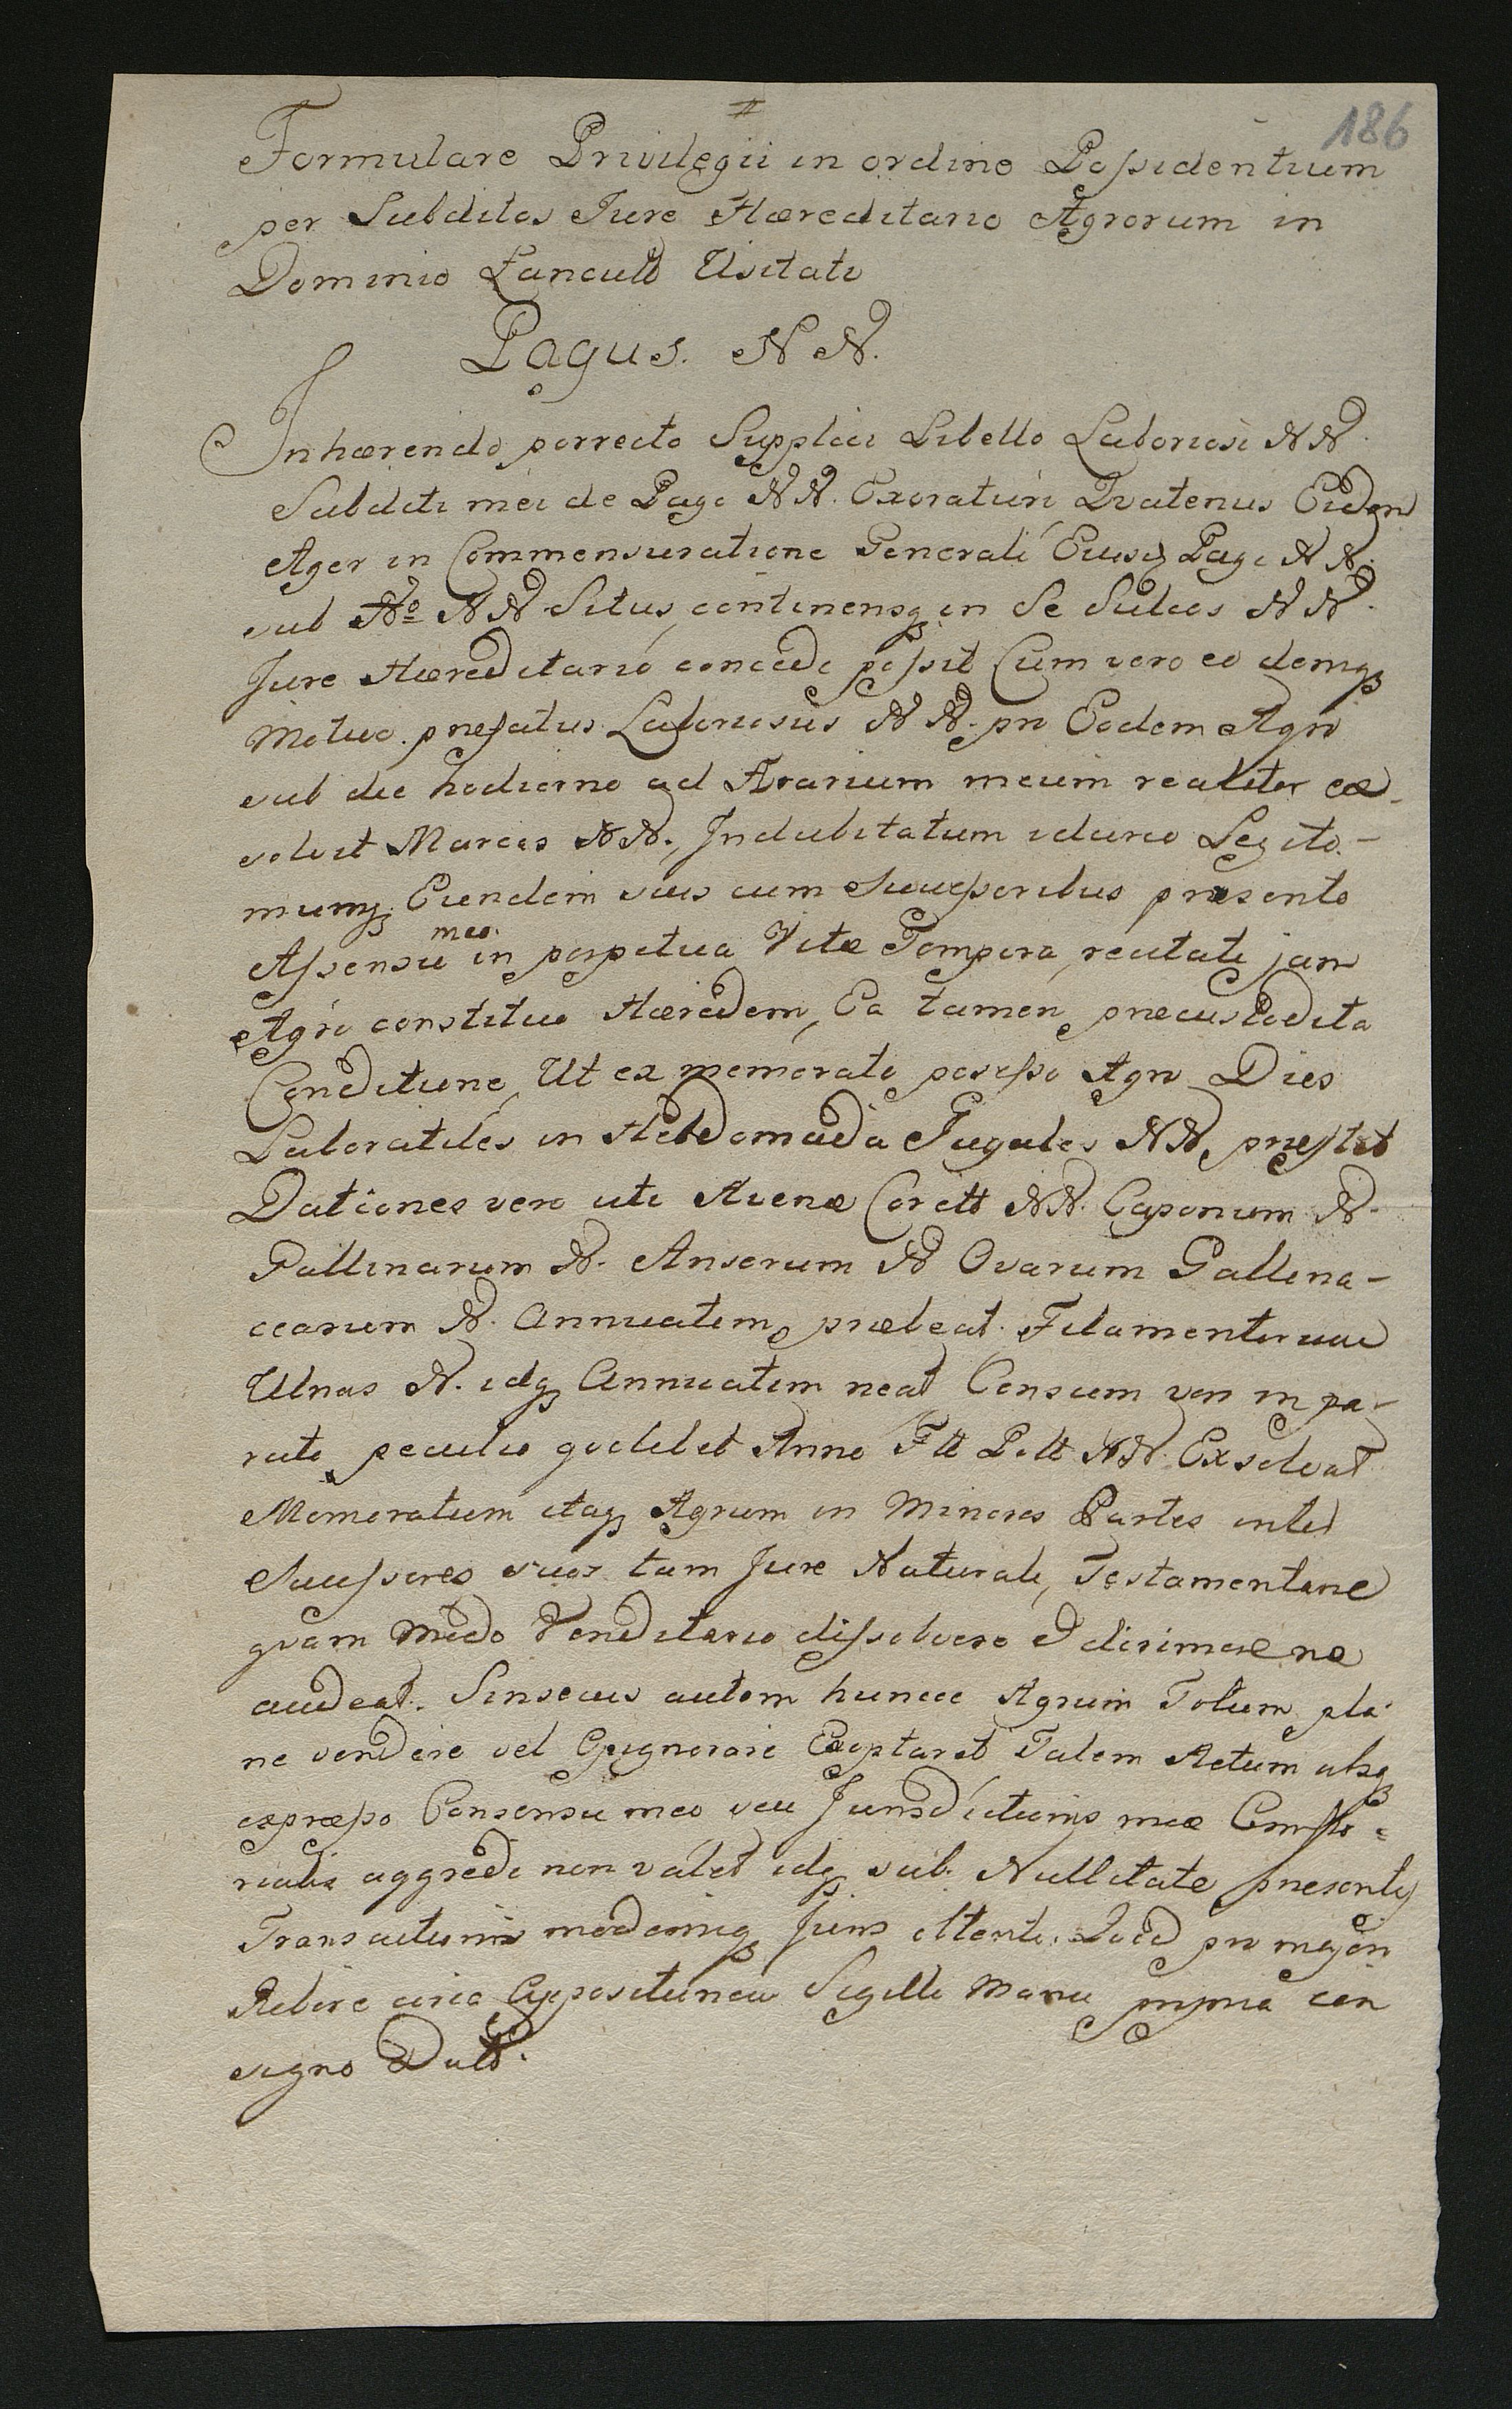 186
Formulare Privilegii in ordine Possidentium
per Subditos Jure Hæreditario Agrorum in
Dominio Łancutt Usitati
Pagus. NN.
Inhærendo porrecto Supplici Libello Laboriosi NN.
Subditi mei de Pago NN. Exoraturi Qvatenus Eidem
Ager in Commensuratione Generali Eiusq Pagi NN.
sub No NN Situs, continensq in Se Sulcos NN.
Jure Hæreditario concedi possit Cum vero eo demqz
Motivo. præfatus Laboriosus NN. pro Eodem Agro
sub die hodierno ad Ærarium meum realiter ex-
solvit Marcas NN., Indubitatum idcirco Legiti-
mumqz Eundem suis cum Successoribus præsente
Assensu meo. in perpetua Vitæ Tempora, recitati jam
Agri constituo Hæredem, Ea tamen præcustodita
Conditione, Ut ex memorato possesso Agro Dies
Laboratiles in Hebdomada Jugales NN, præstet
Dationes vero uti Avenæ Corett NN. Caponum N.
Gallinarum N. Anserum N Ovarum Gallina-
cearum N. Annuatim præbeat. Filamentorum
Ulnas N. idqz Annuatim neat Censum vero in pa-
rato peculio qvolibet Anno Fll Poll NN. Exsolvat
Memoratum itaqz Agrum in Minores Partes inter
Successores suos tam Jure Naturali, Testamentario
qvam Modo Venditario dissolvere et dirimere ne
audeat. Sinsecus autem huncce Agrum Totum pla-
ne vendere vel Opignorare Exoptaret Talem Actum absqz
expræsso Consensu meo seu Jurisdictionis meæ
aggredi non valet idqz sub. Nullitate præsentis
Transactionis Juris Quod pro majori
Robore circa Appositionem Sigilli Manu propria con
signo Datt.